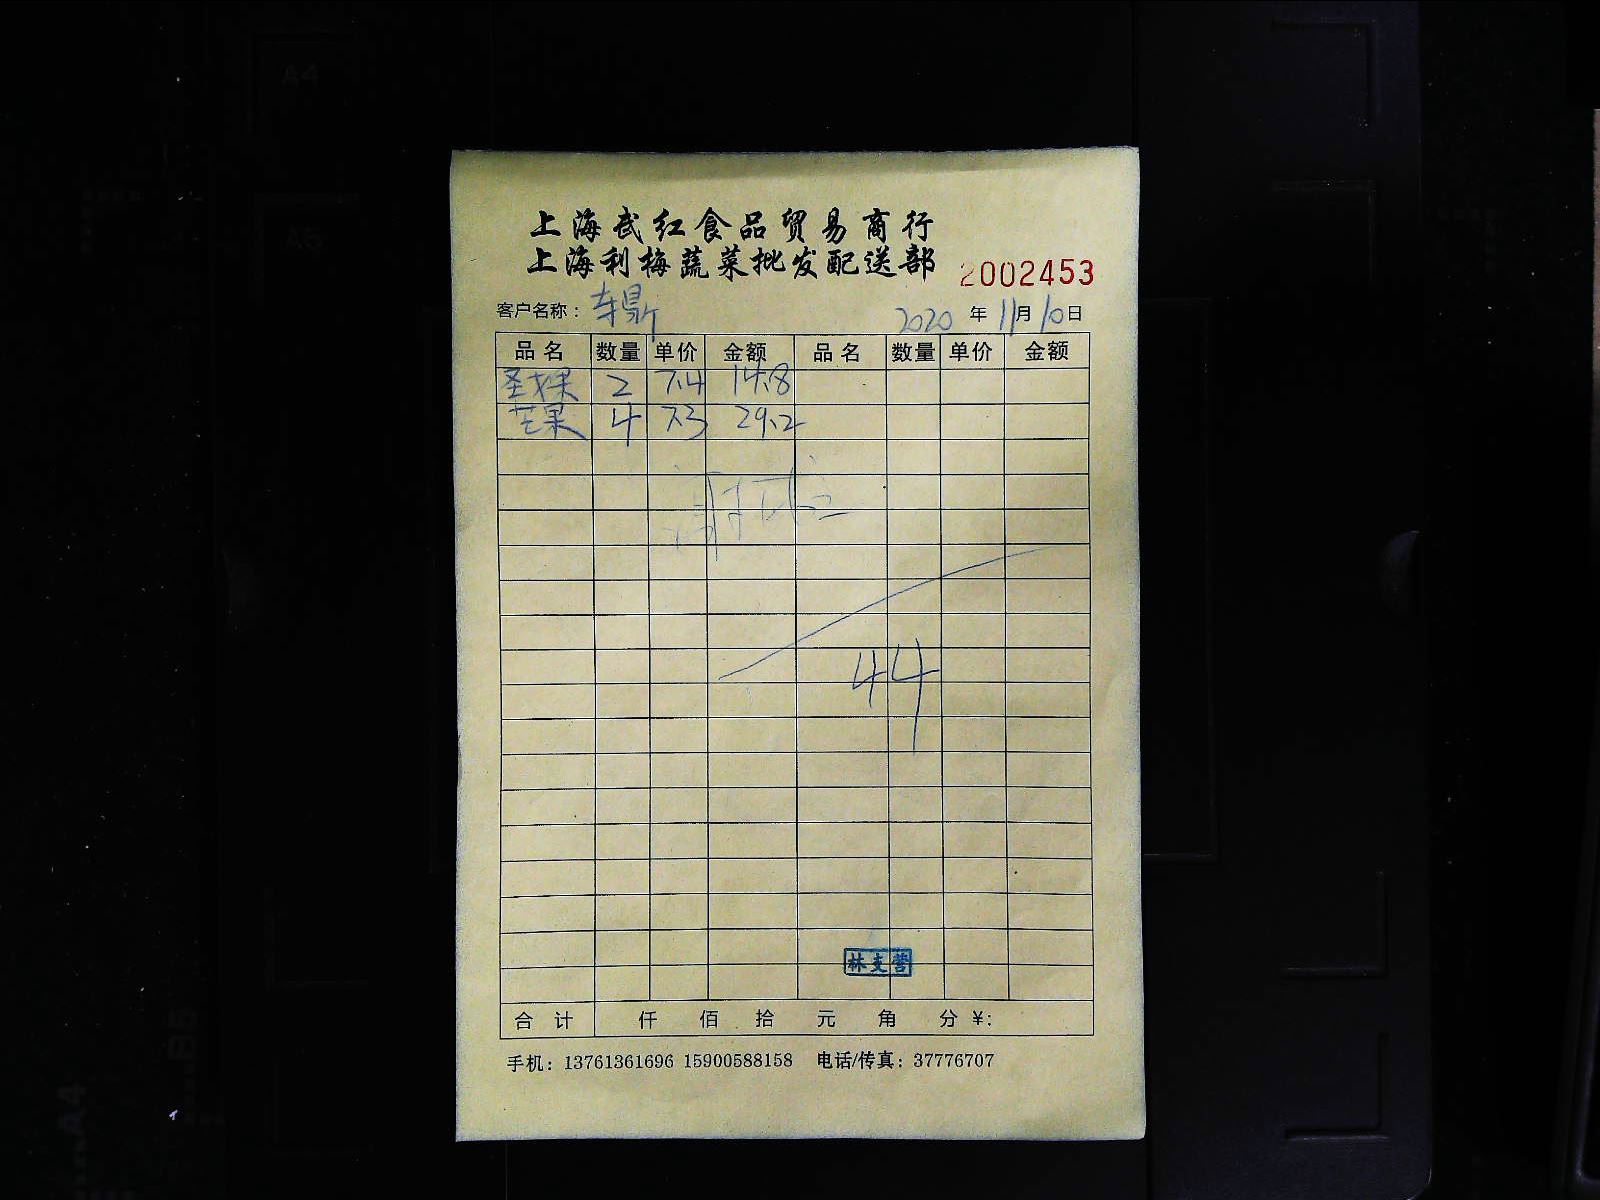 上海武红食品贸易商行
上海利梅蔬菜批发配送部
2002453
客户名称： 2020 年 11 月 10 日
品名 数量 单价 金额 品名 数量 单价 金额
圣女果 2 7.4 14.8
芒果 4 7.3 29.2
44
林支营
合计 仟 佰 拾 元 角 分 ¥:
手机：13761361696 15900588158 电话/传真：37776707